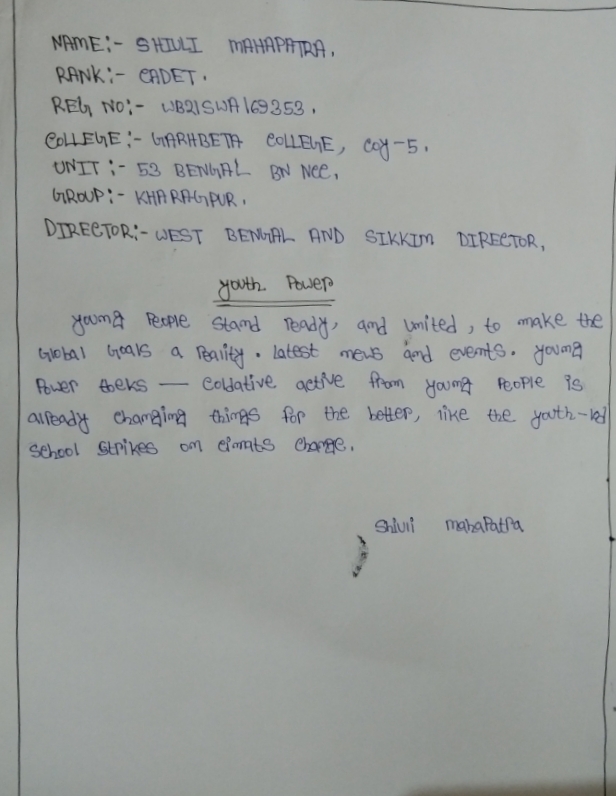 NAME:- SHIULI MAHAPATRA.
RANK:- CADET.
REG NO:- WB21SWA169353.
COLLEGE:- GARHBETA COLLEGE, COY-5.
UNIT:- 53 BENGAL BN NCC.
GROUP:- KHARAGPUR.
DIRECTOR:- WEST BENGAL AND SIKKIM DIRECTOR,
Youth Power
Young People stand ready, and united, to make the
Global Goals a reality. latest news and events. Young
Power toeks — coldative active from young People is
already changing things for the better, like the youth-led
school strikes on cimats change.
Shiuli mahapatra